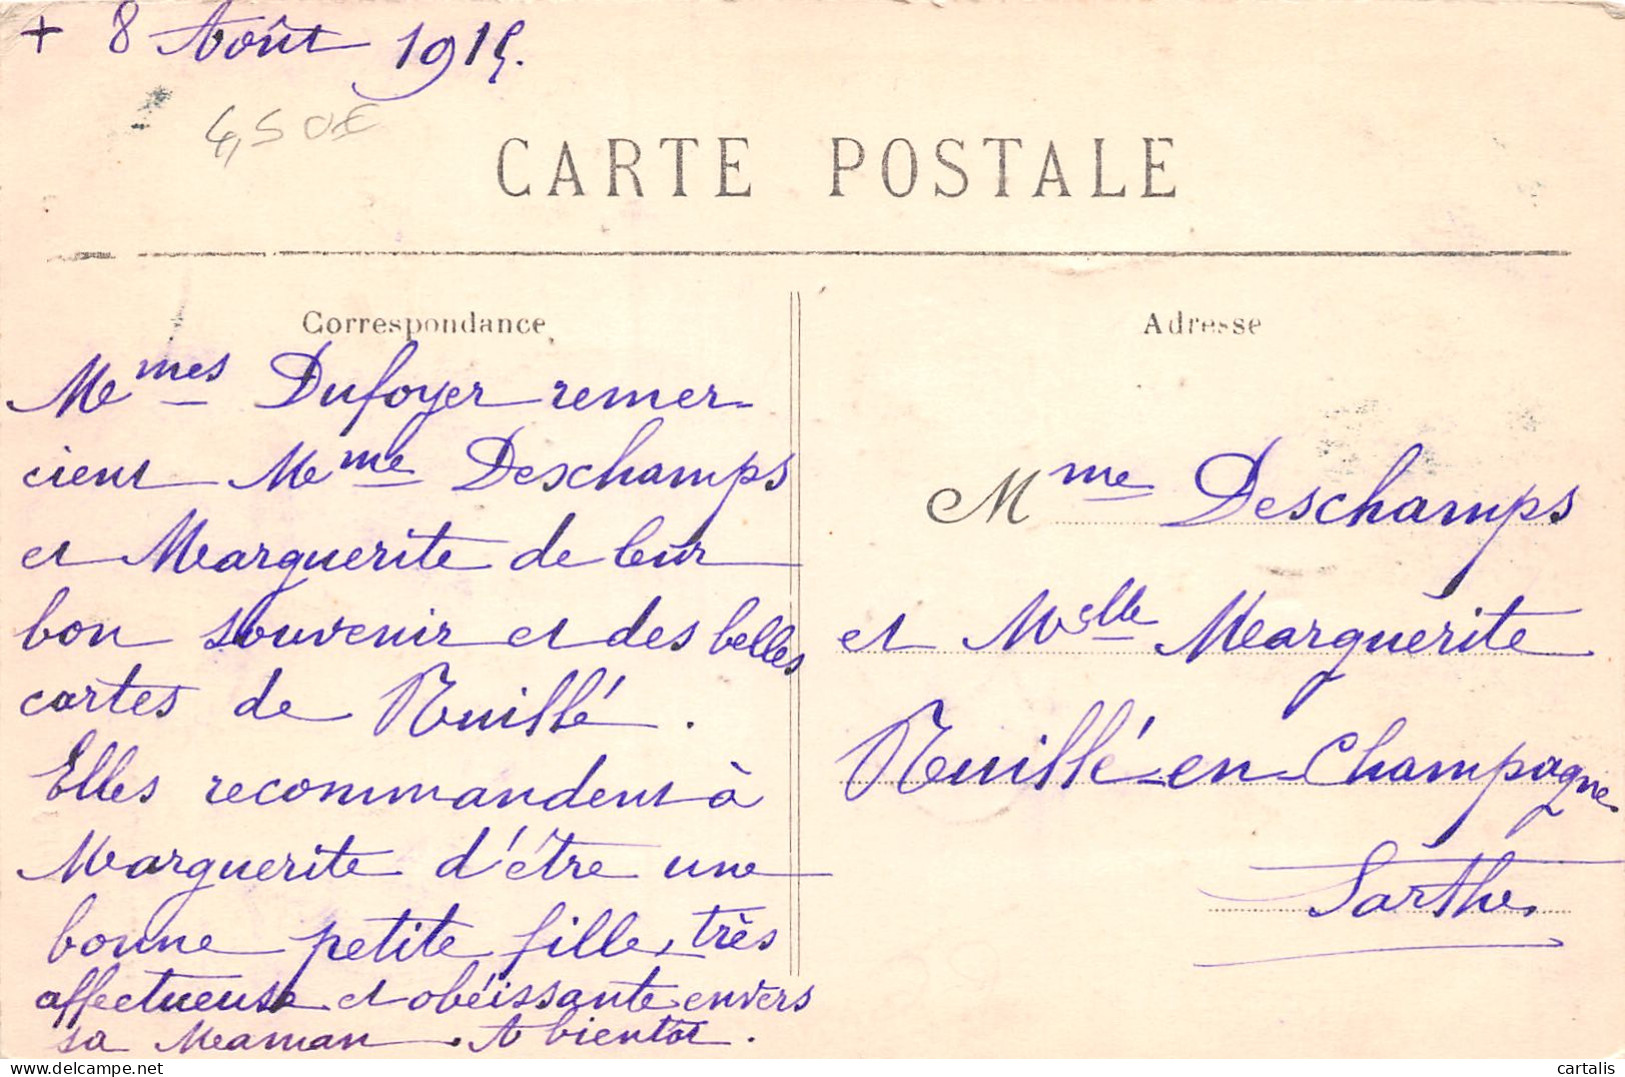 + 8 Août 1915.
4,50€
CARTE POSTALE
Correspondance
Mmes Dufoyer remer-
cient Mme Deschamps
et Marguerite de leur
bon souvenir et des belles
cartes de Neuillé.
Elles recommandent à
Marguerite d'être une
bonne petite fille, très
affectueuse et obéissante envers
sa Maman. A bientôt.
Adresse
Mme Deschamps
et Melle Marguerite
Neuillé-en-Champagne
Sarthe.
delcampe.net
cartalis